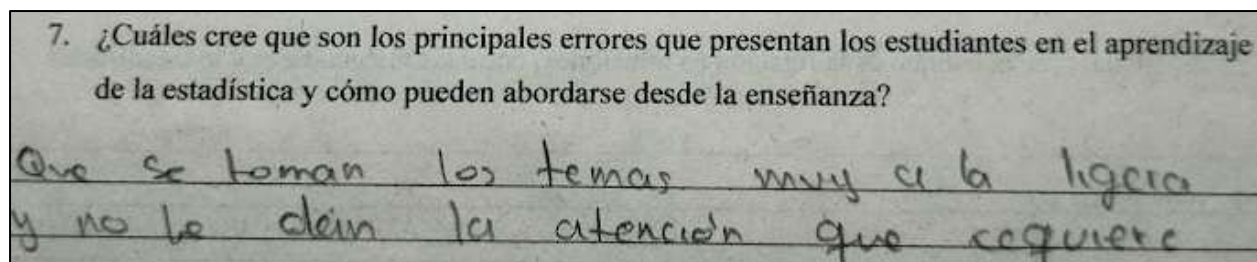 7. ¿Cuáles cree que son los principales errores que presentan los estudiantes en el aprendizaje
de la estadística y cómo pueden abordarse desde la enseñanza?
Que se toman los temas muy a la ligera
y no le dán la atención que requiere